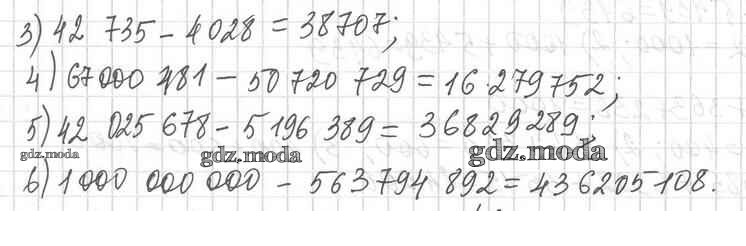 3) 42 735 - 4028 = 38707;
4) 67 000 481 - 50 720 729 = 16 279 752;
5) 42 025 678 - 5 196 389 = 36829289;
gdz.moda gdz.moda gdz.moda
6) 1 000 000 000 - 563794 892 = 436205108.